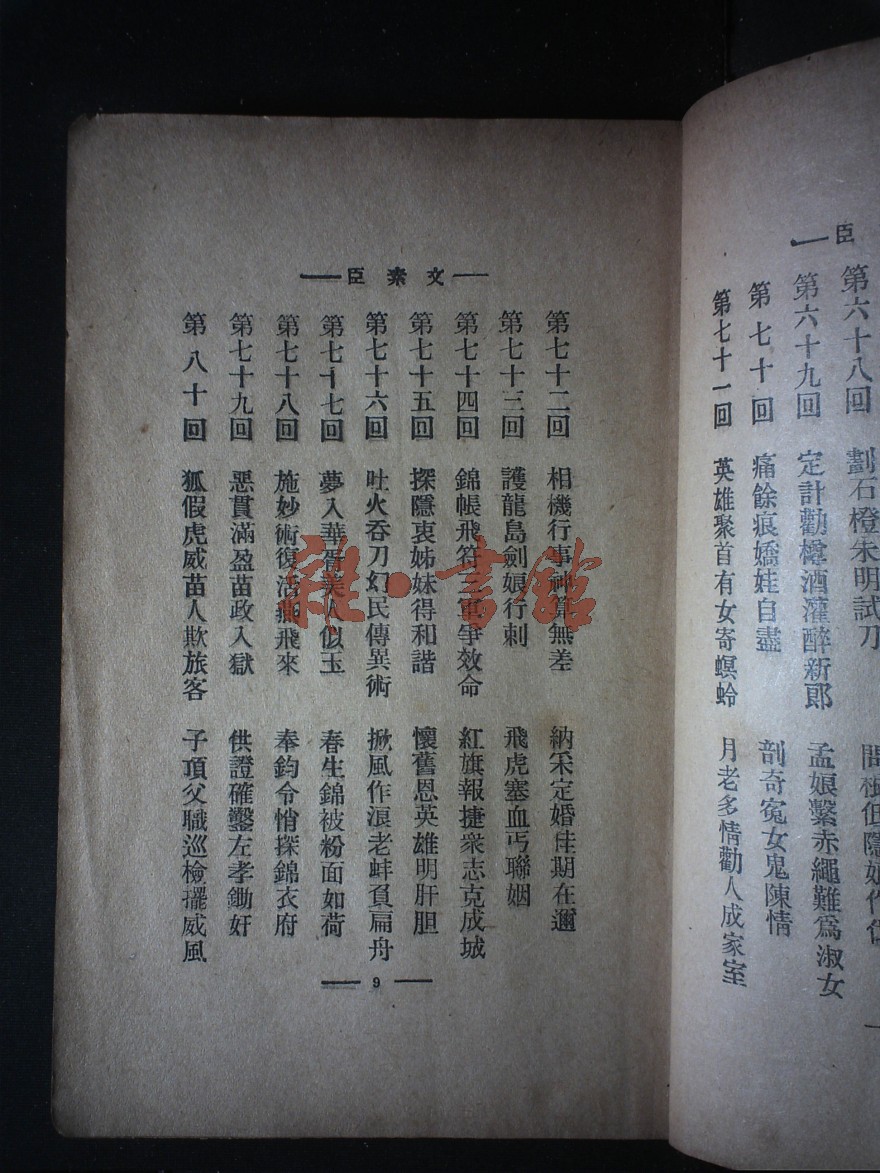 臣
第六十八回 劃石橙朱明試刀
第六十九回 定計勸樽酒灌醉新郎 孟娘繫赤繩難爲淑女
第七十回 痛餘痕嬌娃自盡 剖奇寃女鬼陳情
第七十一回 英雄聚首有女寄螟蛉 月老多情勸人成家室
文素臣
第七十二回 相機行事神算無差 納采定婚佳期在邇
第七十三回 護龍島劍娘行刺 飛虎塞血丐聯姻
第七十四回 錦帳飛符三軍爭效命 紅旗報捷衆志克成城
第七十五回 探隱衷姊妹得和諧 懷舊恩英雄明肝胆
第七十六回 吐火吞刀幻民傳異術 掀風作浪老蚌負扁舟
第七十七回 夢入華胥美人似玉 春生錦被粉面如荷
第七十八回 施妙術復活燕飛來 奉鈞令悄探錦衣府
第七十九回 惡貫滿盈苗政入獄 供證確鑿左孝鋤奸
第八十回 狐假虎威苗人欺旅客 子頂父職巡檢擺威風
9
雜·書館